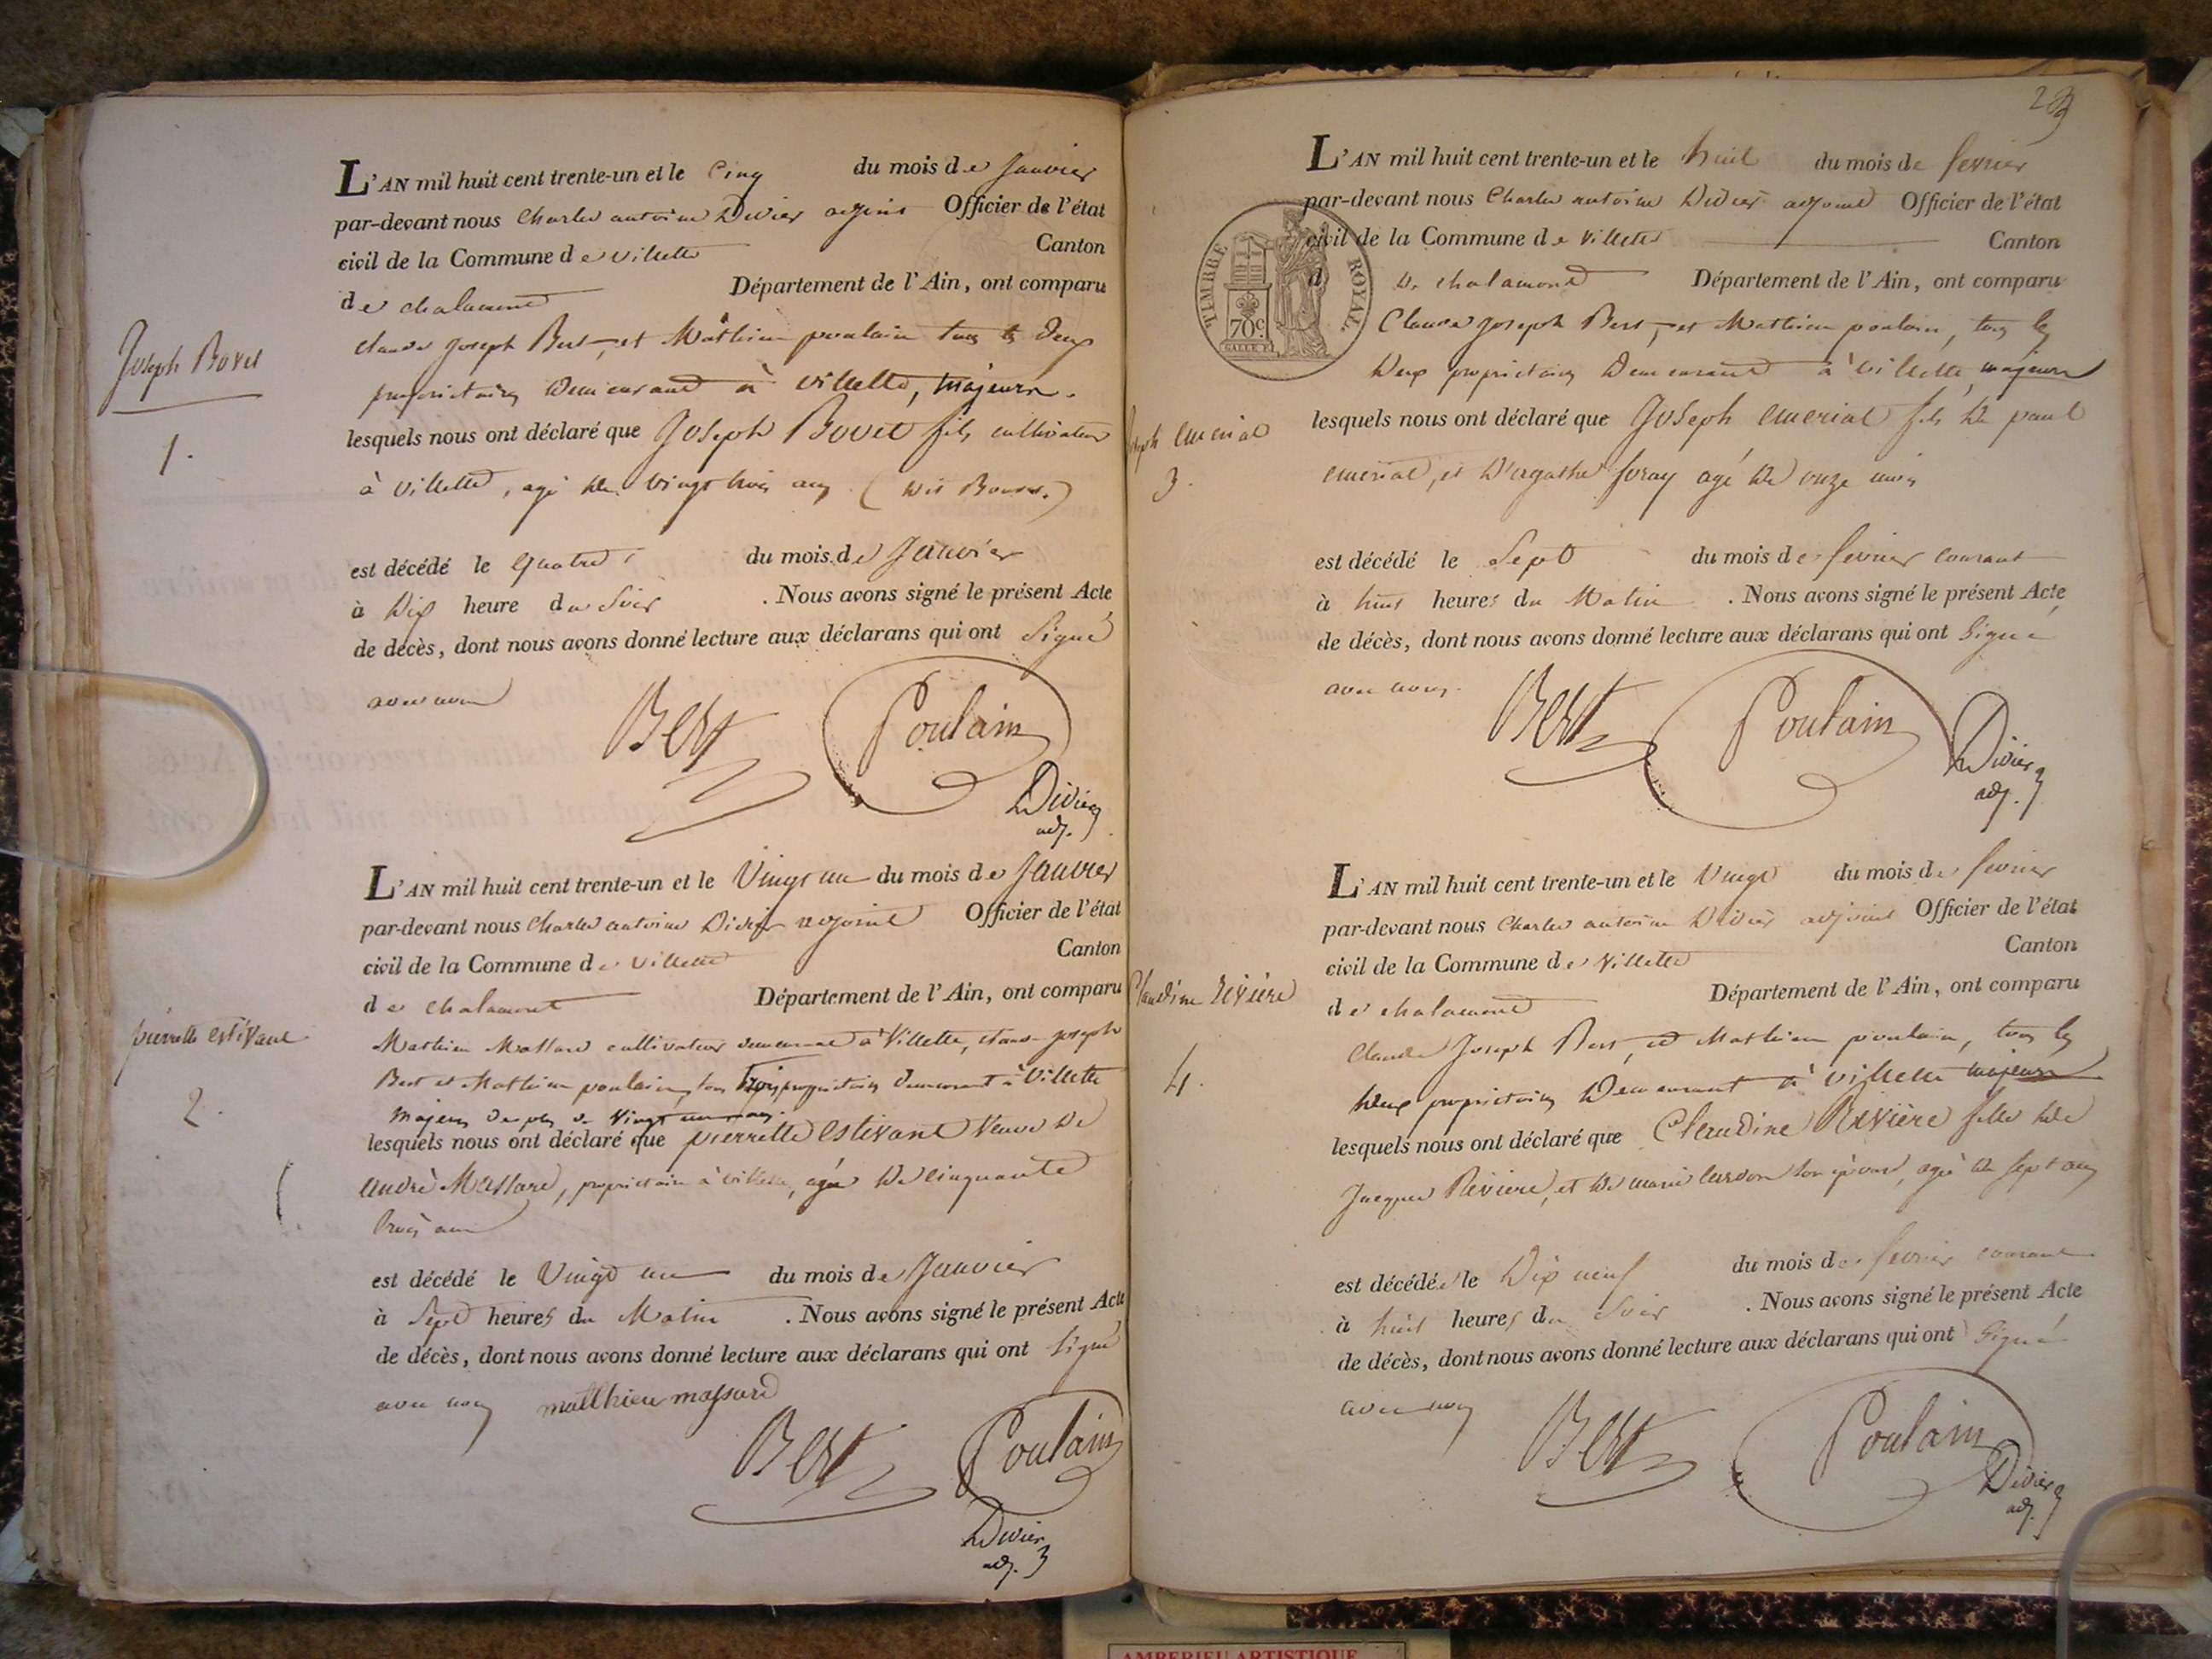 Joseph Bovet
1.
L'AN mil huit cent trente-un et le Cinq du mois de Janvier
par-devant nous Charles antoine Divier adjoint Officier de l'état
civil de la Commune de villette Canton
de chalamont Département de l'Ain, ont comparu
claude joseph Bert, et Mathieu poulain tous les deux
proprietaires demeurant à villette, majeurs.
lesquels nous ont déclaré que Joseph Bovet fils cultivateur
à villette, agé de vingt trois ans
est décédé le quatre du mois de Janvier
à Dix heure du Soir . Nous avons signé le présent Acte
de décès, dont nous avons donné lecture aux déclarans qui ont Signé
avec nous
Bert Poulain
Divier
adj.
pierrette estivant
2.
L'AN mil huit cent trente-un et le Vingt un du mois de Janvier
par-devant nous Charles antoine Divier adjoint Officier de l'état
civil de la Commune de villette Canton
de chalamont Département de l'Ain, ont comparu
Mathieu Massard cultivateur demeurant à Villette, claude joseph
Bert et Mathieu poulain, tous trois proprietaires demeurant à Villette
majeurs de plus de vingt un ans.
lesquels nous ont déclaré que pierrette estivant veuve de
andré Massard, proprietaire à villette, agée de cinquante
trois ans
est décédé le Vingt un du mois de Janvier
à Sept heures du Matin . Nous avons signé le présent Acte
de décès, dont nous avons donné lecture aux déclarans qui ont Signé
avec nous matthieu massard
Bert Poulain
Divier
adj.
23
TIMBRE ROYAL
70c
L'AN mil huit cent trente-un et le huit du mois de fevrier
par-devant nous Charles antoine Divier adjoint Officier de l'état
civil de la Commune de villette Canton
d de chalamont Département de l'Ain, ont comparu
Claude joseph Bert, et Mathieu poulain, tous les
deux proprietaires demeurant à villette, majeurs
Joseph emeriat
3.
lesquels nous ont déclaré que Joseph emeriat fils de paul
emeriat, et d'agathe foray agé de onze mois
est décédé le Sept du mois de fevrier courant
à huit heures du Matin . Nous avons signé le présent Acte
de décès, dont nous avons donné lecture aux déclarans qui ont Signé
avec nous.
Bert Poulain
Divier
adj.
Claudine Riviére
4.
L'AN mil huit cent trente-un et le Vingt du mois de fevrier
par-devant nous Charles antoine Divier adjoint Officier de l'état
civil de la Commune de Villette Canton
de chalamont Département de l'Ain, ont comparu
Claude Joseph Bert, et Mathieu poulain, tous les
deux proprietaires demeurant à villette majeurs
lesquels nous ont déclaré que Claudine Rivière fille de
Jacques Riviere, et de marie curdon son épouse, agé de sept ans
est décédée le Dix neuf du mois de fevrier courant
à huit heures du Soir . Nous avons signé le présent Acte
de décès, dont nous avons donné lecture aux déclarans qui ont Signé
avec nous
Bert Poulain
Divier
adj.
AMBERIEU ARTISTIQUE